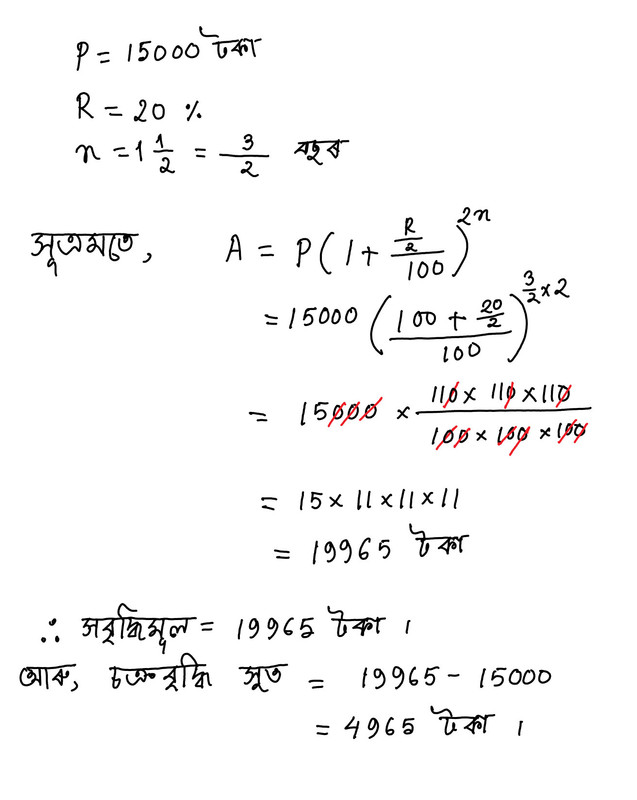 P = 15000 টকা
R = 20 %
n = 1 1/2 = 3/2 বছৰ
সূত্ৰমতে, A = P(1 + (R/2)/100)^2n
= 15000 ((100 + 20/2)/100)^(3/2 × 2)
= 15000 × (110 × 110 × 110)/(100 × 100 × 100)
= 15 × 11 × 11 × 11
= 19965 টকা
∴ সবৃদ্ধিমূল = 19965 টকা ।
আৰু, চক্ৰবৃদ্ধি সূত = 19965 - 15000
= 4965 টকা ।